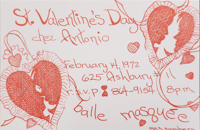 St. Valentine's Day
chez Antonio
February 14, 1972
625 Ashbury
r.s.v.p. 864-9164 8 p.m.
balle masquée